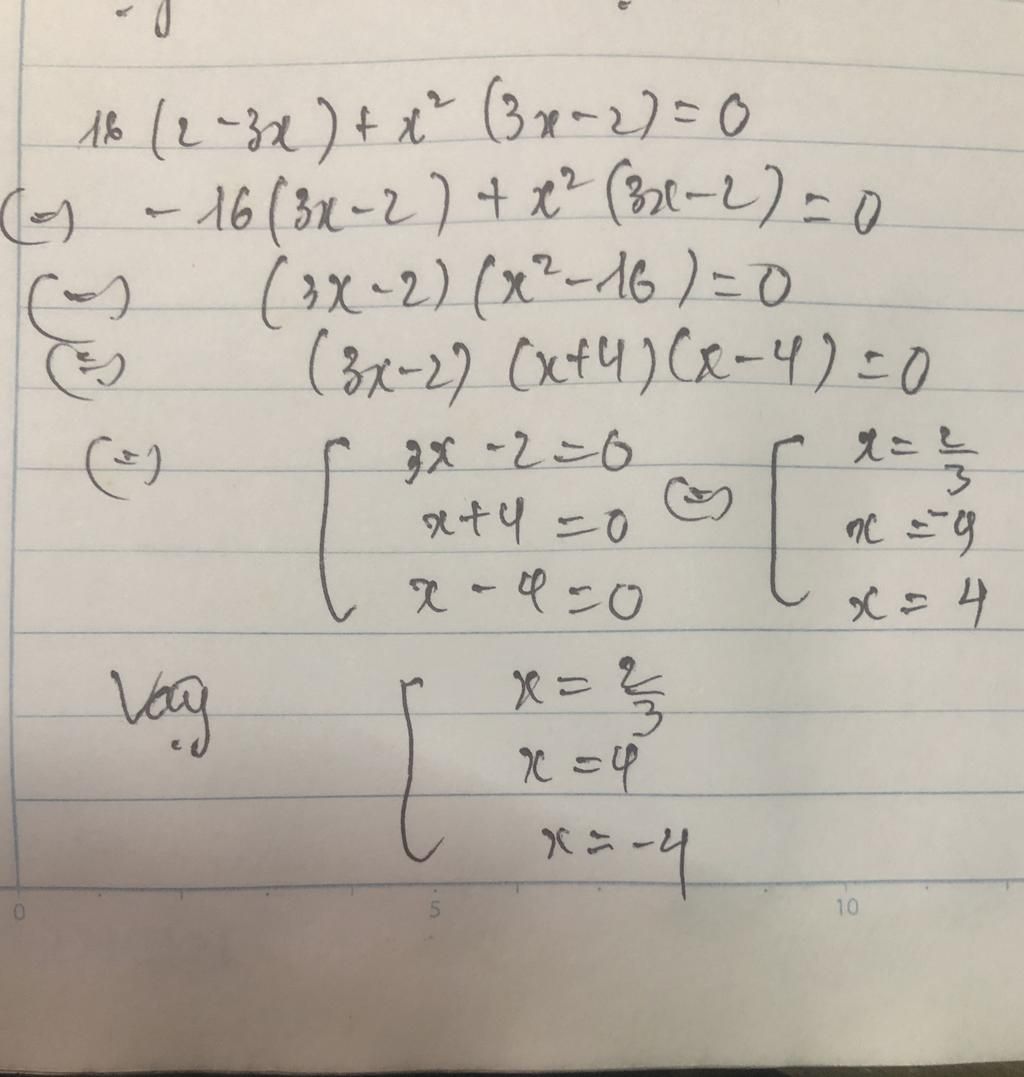 16 (2 - 3x) + x² (3x - 2) = 0
(=) - 16 (3x - 2) + x² (3x - 2) = 0
(=) (3x - 2) (x² - 16) = 0
(=) (3x - 2) (x + 4) (x - 4) = 0
(=) [ 3x - 2 = 0 (=) [ x = 2/3
x + 4 = 0 x = -4
x - 4 = 0 x = 4
Vậy [ x = 2/3
x = 4
x = -4
0 5 10